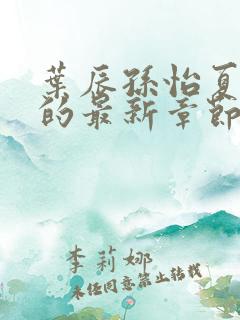 葉辰孫怡夏
的最新章節
李莉娜
未經同意禁止轉載